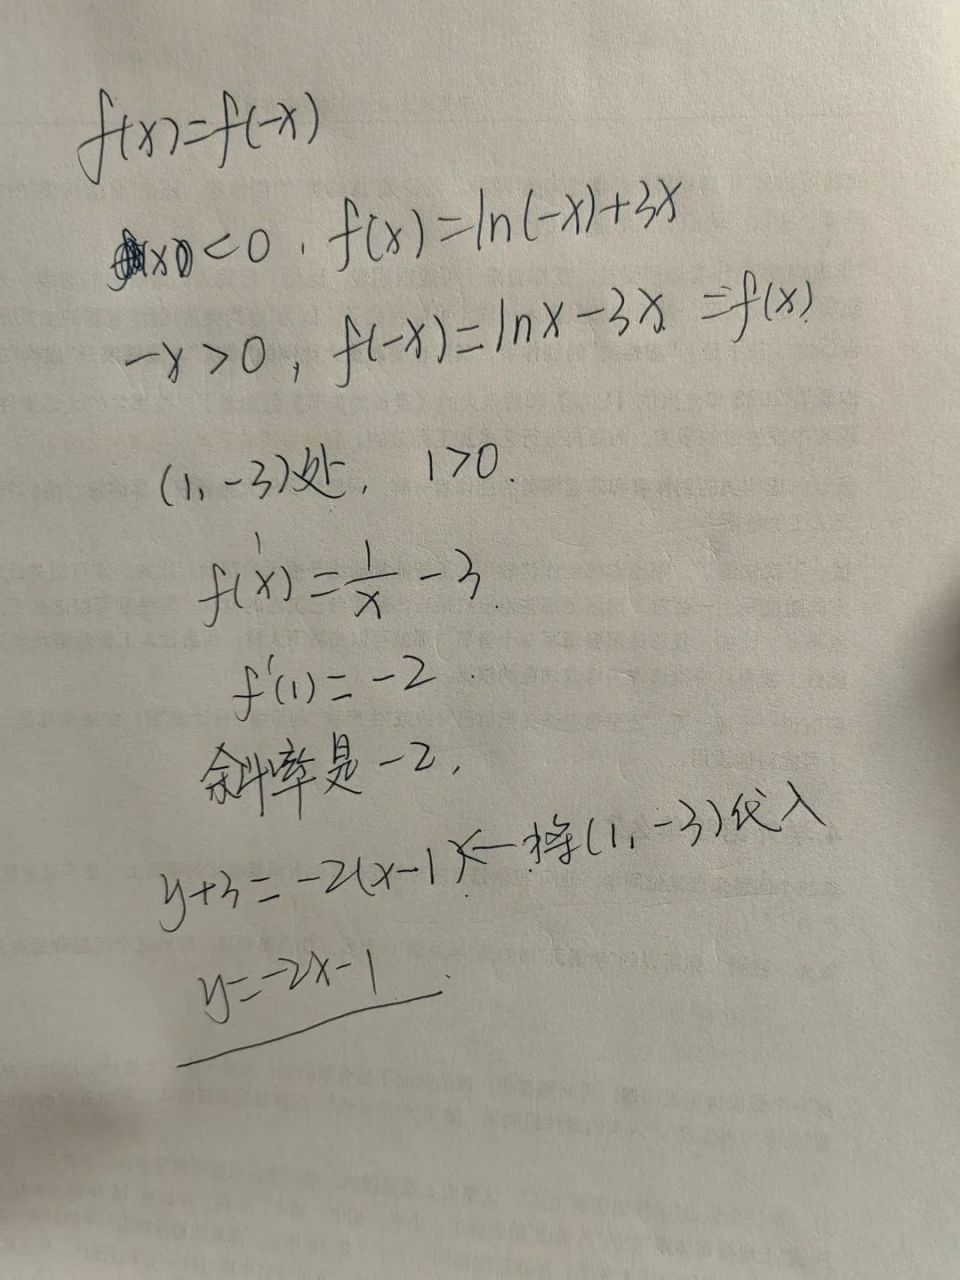 f(x)=f(-x)
x<0, f(x)=ln(-x)+3x
-x>0, f(-x)=lnx-3x =f(x)
(1,-3)处, 1>0.
f'(x)=1/x-3.
f'(1)=-2
斜率是-2,
y+3=-2(x-1)←将(1,-3)代入
y=-2x-1